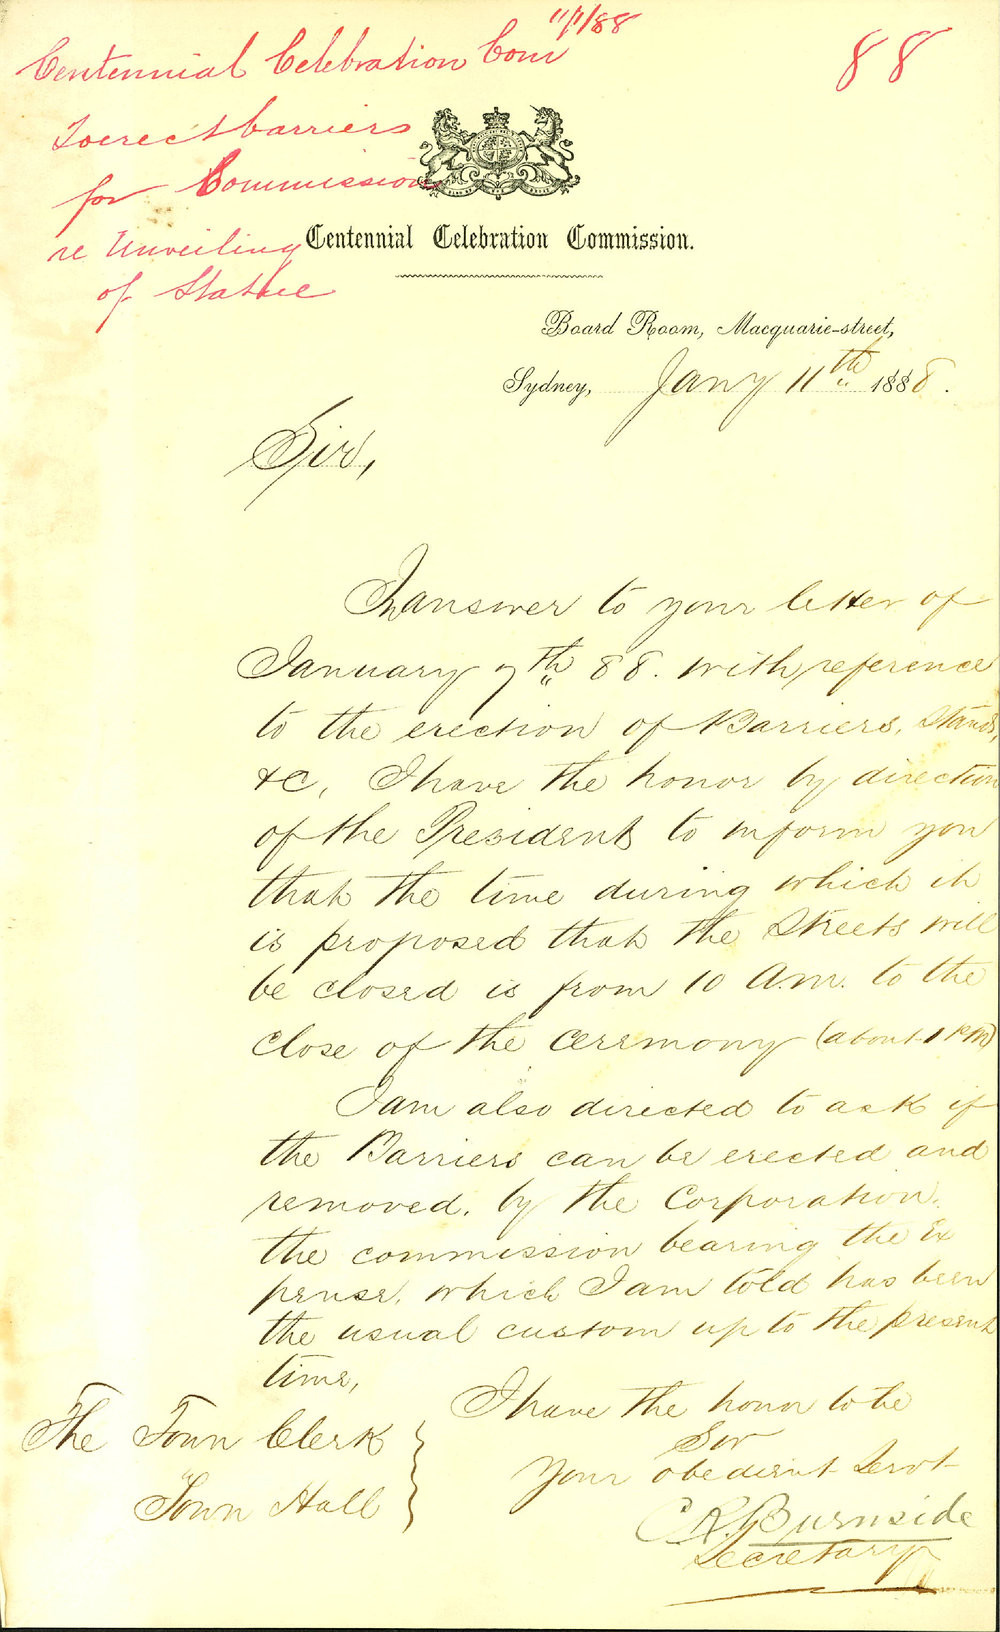 Centennial Celebration Com 11/1/88
88
To erect barriers
for Commission
re Unveiling
of Statue
Centennial Celebration Commission.
Board Room, Macquarie-street,
Sydney, Jany 11th 1888.
Sir,
In answer to your letter of
January 7th 88. with reference
to the erection of Barriers, Stands,
&c, I have the honor by direction
of the President to inform you
that the time during which it
is proposed that the Streets will
be closed is from 10 A.m. to the
close of the ceremony (about 1 PM)
I am also directed to ask if
the Barriers can be erected and
removed, by the Corporation,
the commission bearing the Ex
pense, which I am told has been
the usual custom up to the present
time,
I have the honor to be
Sir
Your obedient Servt
C. R. Burnside
Secretary
The Town Clerk
Town Hall